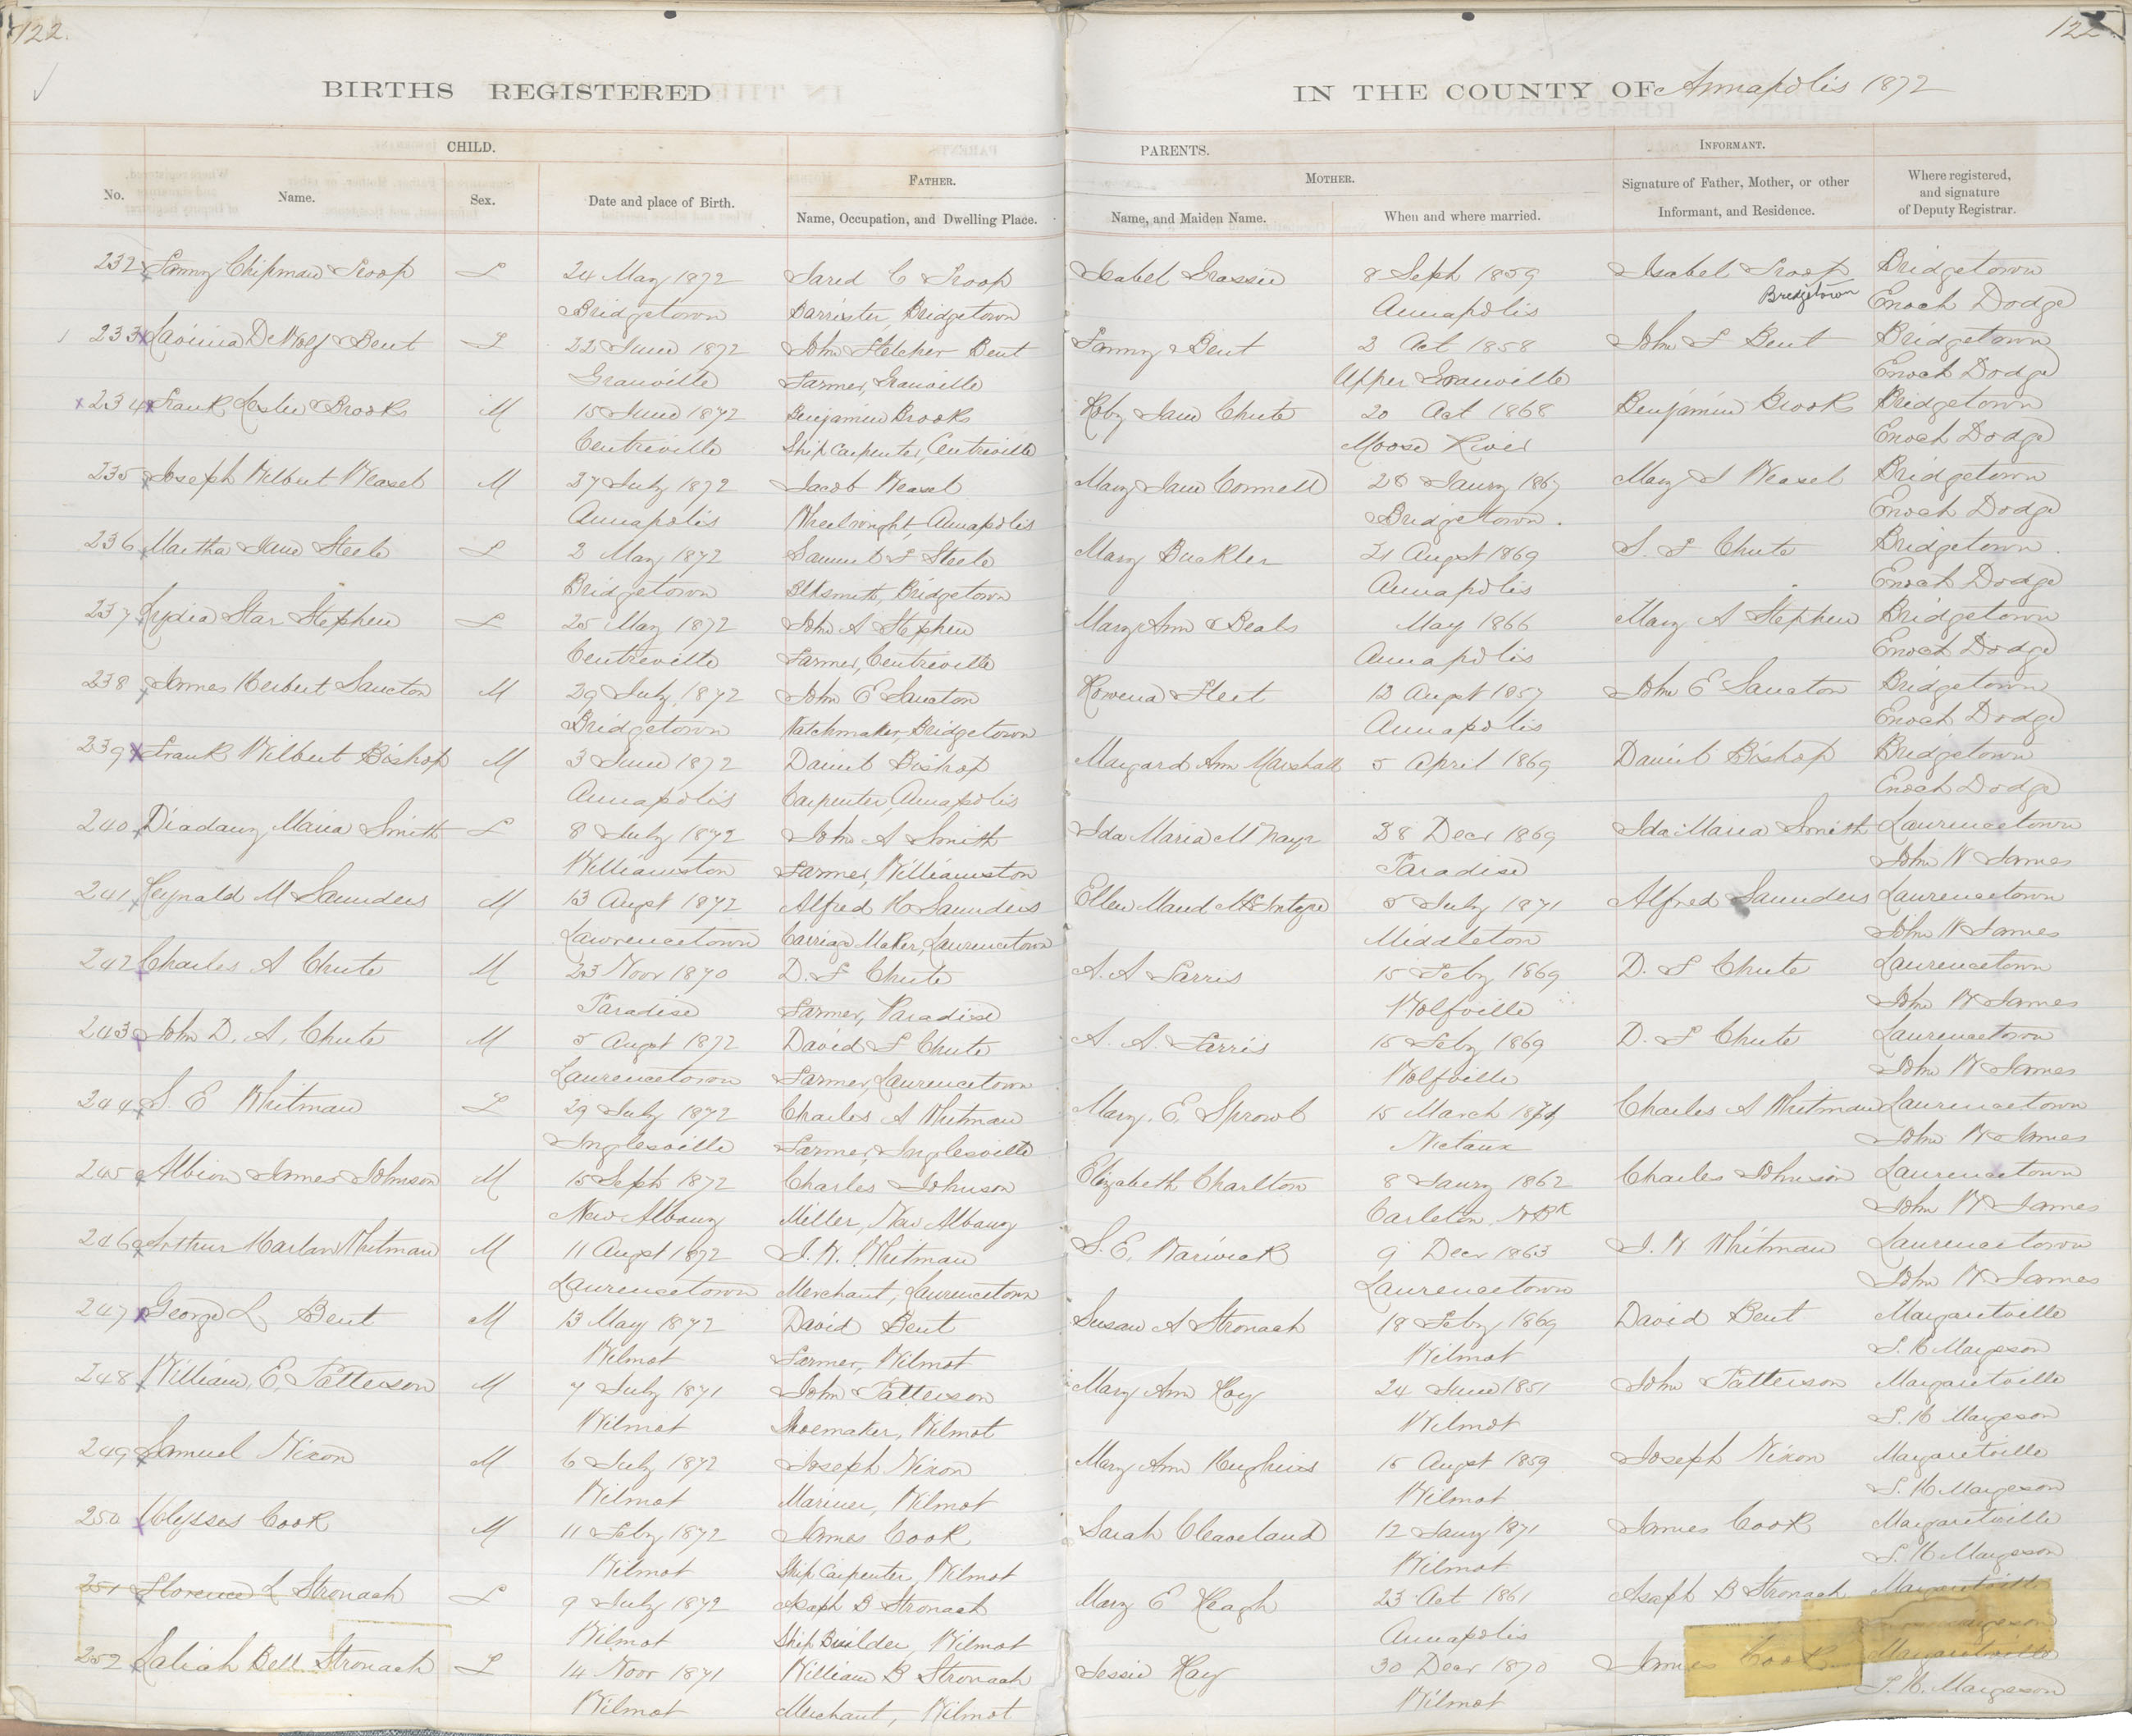 122.
122
BIRTHS REGISTERED
IN THE COUNTY OF Annapolis 1872
CHILD.
PARENTS.
INFORMANT.
No.
Name.
Sex.
Date and place of Birth.
FATHER.
Name, Occupation, and Dwelling Place.
MOTHER.
Name, and Maiden Name.
When and where married.
Signature of Father, Mother, or other
Informant, and Residence.
Where registered,
and signature
of Deputy Registrar.
232 Fanny Chipman Troop F 24 May 1872 Jared C Troop Isabel Grassie 8 Sept 1859 Isabel Troop Bridgetown
Bridgetown Barrister, Bridgetown Annapolis Bridgetown Enoch Dodge
233 Lavinia DeWolf Bent F 22 June 1872 John Fletcher Bent Fanny Bent 2 Oct 1858 John F Bent Bridgetown
Granville Farmer, Granville Upper Granville Enoch Dodge
234 Frank Leslie Brooks M 15 June 1872 Benjamin Brooks Roby Jane Chute 20 Oct 1868 Benjamin Brooks Bridgetown
Centreville Ship Carpenter, Centreville Moose River Enoch Dodge
235 Joseph Wilbert Weasel M 27 July 1872 Jacob Weasel Mary Jane Connell 28 Jany 1867 Mary J Weasel Bridgetown
Annapolis Wheelwright, Annapolis Bridgetown. Enoch Dodge
236 Martha Jane Steele F 2 May 1872 Samuel F Steele Mary Buckler 21 Augst 1869 S. F Chute Bridgetown.
Bridgetown Blksmith, Bridgetown Annapolis Enoch Dodge
237 Lydia Star Stephen F 25 May 1872 John A Stephen Mary Ann Beals May 1866 Mary A Stephen Bridgetown
Centreville Farmer, Centreville Annapolis Enoch Dodge
238 James Herbert Sancton M 29 July 1872 John E Sancton Rowena Fleet 12 Augst 1857 John E Sancton Bridgetown
Bridgetown Watchmaker, Bridgetown Annapolis Enoch Dodge
239 Frank Wilbert Bishop M 3 June 1872 Daniel Bishop Margard Ann Marshall 5 April 1869 Daniel Bishop Bridgetown
Annapolis Carpenter, Annapolis Enoch Dodge
240 Diadany Maria Smith F 8 July 1872 John A Smith Ida Maria 28 Decr 1869 Ida Maria Smith Laurencetown
Williamston Farmer, Williamston Paradise John W James
241 Reynald M Saunders M 13 Augst 1872 Alfred H Saunders Ellen Maud McIntyre 5 July 1871 Alfred Saunders Laurencetown
Lawrencetown Carriage Maker, Laurencetown Middleton John W James
242 Charles A Chute M 23 Novr 1870 D. F Chute A. A Farris 15 Feby 1869 D. F Chute Laurencetown
Paradise Farmer, Paradise Wolfville John W James
243 John D. A. Chute M 5 Augst 1872 David F Chute A. A. Farris 15 Feby 1869 D. F Chute Laurencetown
Laurencetown Farmer, Laurencetown Wolfville John W James
244 S. E Whitman F 29 July 1872 Charles A Whitman Mary. E. Sprowl 15 March 1871 Charles A Whitman Laurencetown
Inglesville Farmer, Inglesville Nictaux John W James
245 Albion James Johnson M 15 Sept 1872 Charles Johnson Elizabeth Charlton 8 Jany 1862 Charles Johnson Laurencetown
New Albany Miller, New Albany Carleton, N BK John W James
246 Arthur Harlan Whitman M 11 Augst 1872 J. W. Whitman S. E. Warwick 9 Decr 1863 J. W Whitman Laurencetown
Laurencetown Merchant, Laurencetown Laurencetown John W James
247 George L Bent M 13 May 1872 David Bent Susan A Stronach 18 Feby 1869 David Bent Margaretville
Wilmot Farmer, Wilmot Wilmot S. H Margeson
248 William. E. Patterson M 7 July 1871 John Patterson Mary Ann Hoy 24 June 1851 John Patterson Margaretville
Wilmot Shoemaker, Wilmot Wilmot S. H Margeson
249 Samuel Nixon M 6 July 1872 Joseph Nixon Mary Ann Hughins 15 Augst 1859 Joseph Nixon Margaretville
Wilmot Mariner, Wilmot Wilmot S. H Margeson
250 Ulysses Cook M 11 Feby 1872 James Cook Sarah Cleaveland 12 Jany 1871 James Cook Margaretville
Wilmot Ship Carpenter, Wilmot Wilmot S. H Margeson
251 Florence L Stronach F 9 July 1872 Asaph B Stronach Mary E Keagh 23 Oct 1861 Asaph B Stronach Margaretville
Wilmot Ship Builder, Wilmot Annapolis Margeson
252 Saliah Bell Stronach F 14 Novr 1871 William B Stronach Jessie Hay 30 Decr 1870 James Cook Margaretville
Wilmot Merchant, Wilmot Wilmot S. H. Margeson